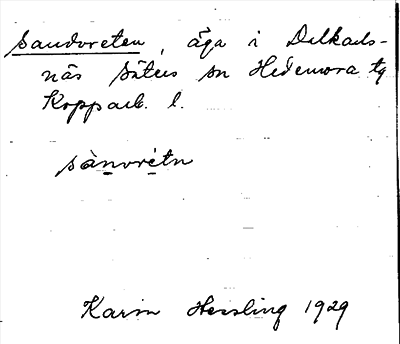 Sandvreten, äga i Delkads-
näs Säters sn Hedemora tg
Kopparb. l.
sànvrétn
Karin Hessling 1929